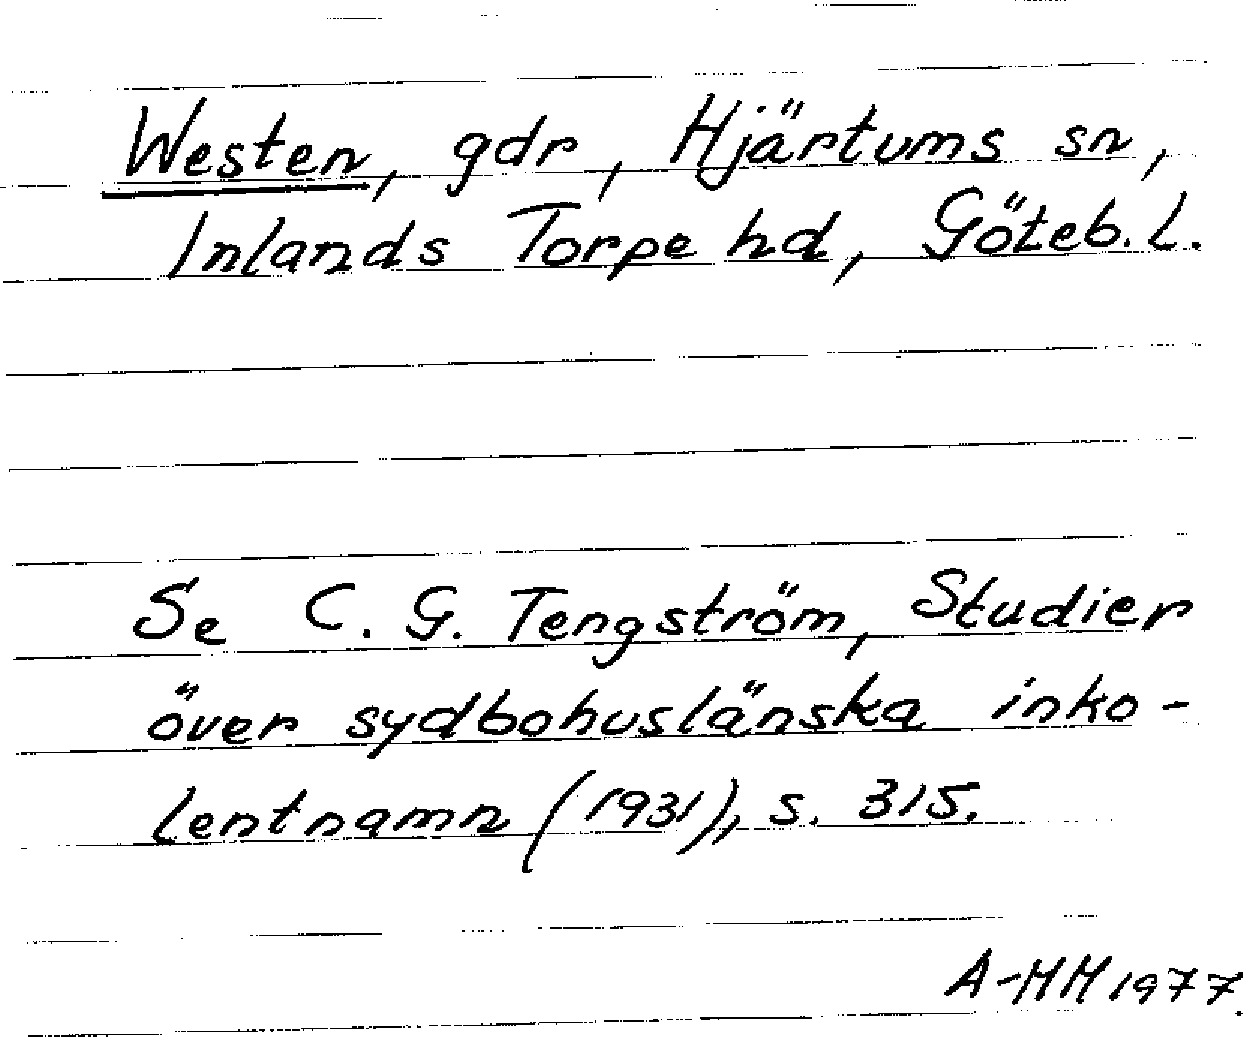 Westen, gdr, Hjärtums sn,
Inlands Torpe hd, Göteb. l.
Se C. G. Tengström, Studier
över sydbohuslänska inko-
lentnamn (1931), s. 315.
A-MM 1977.